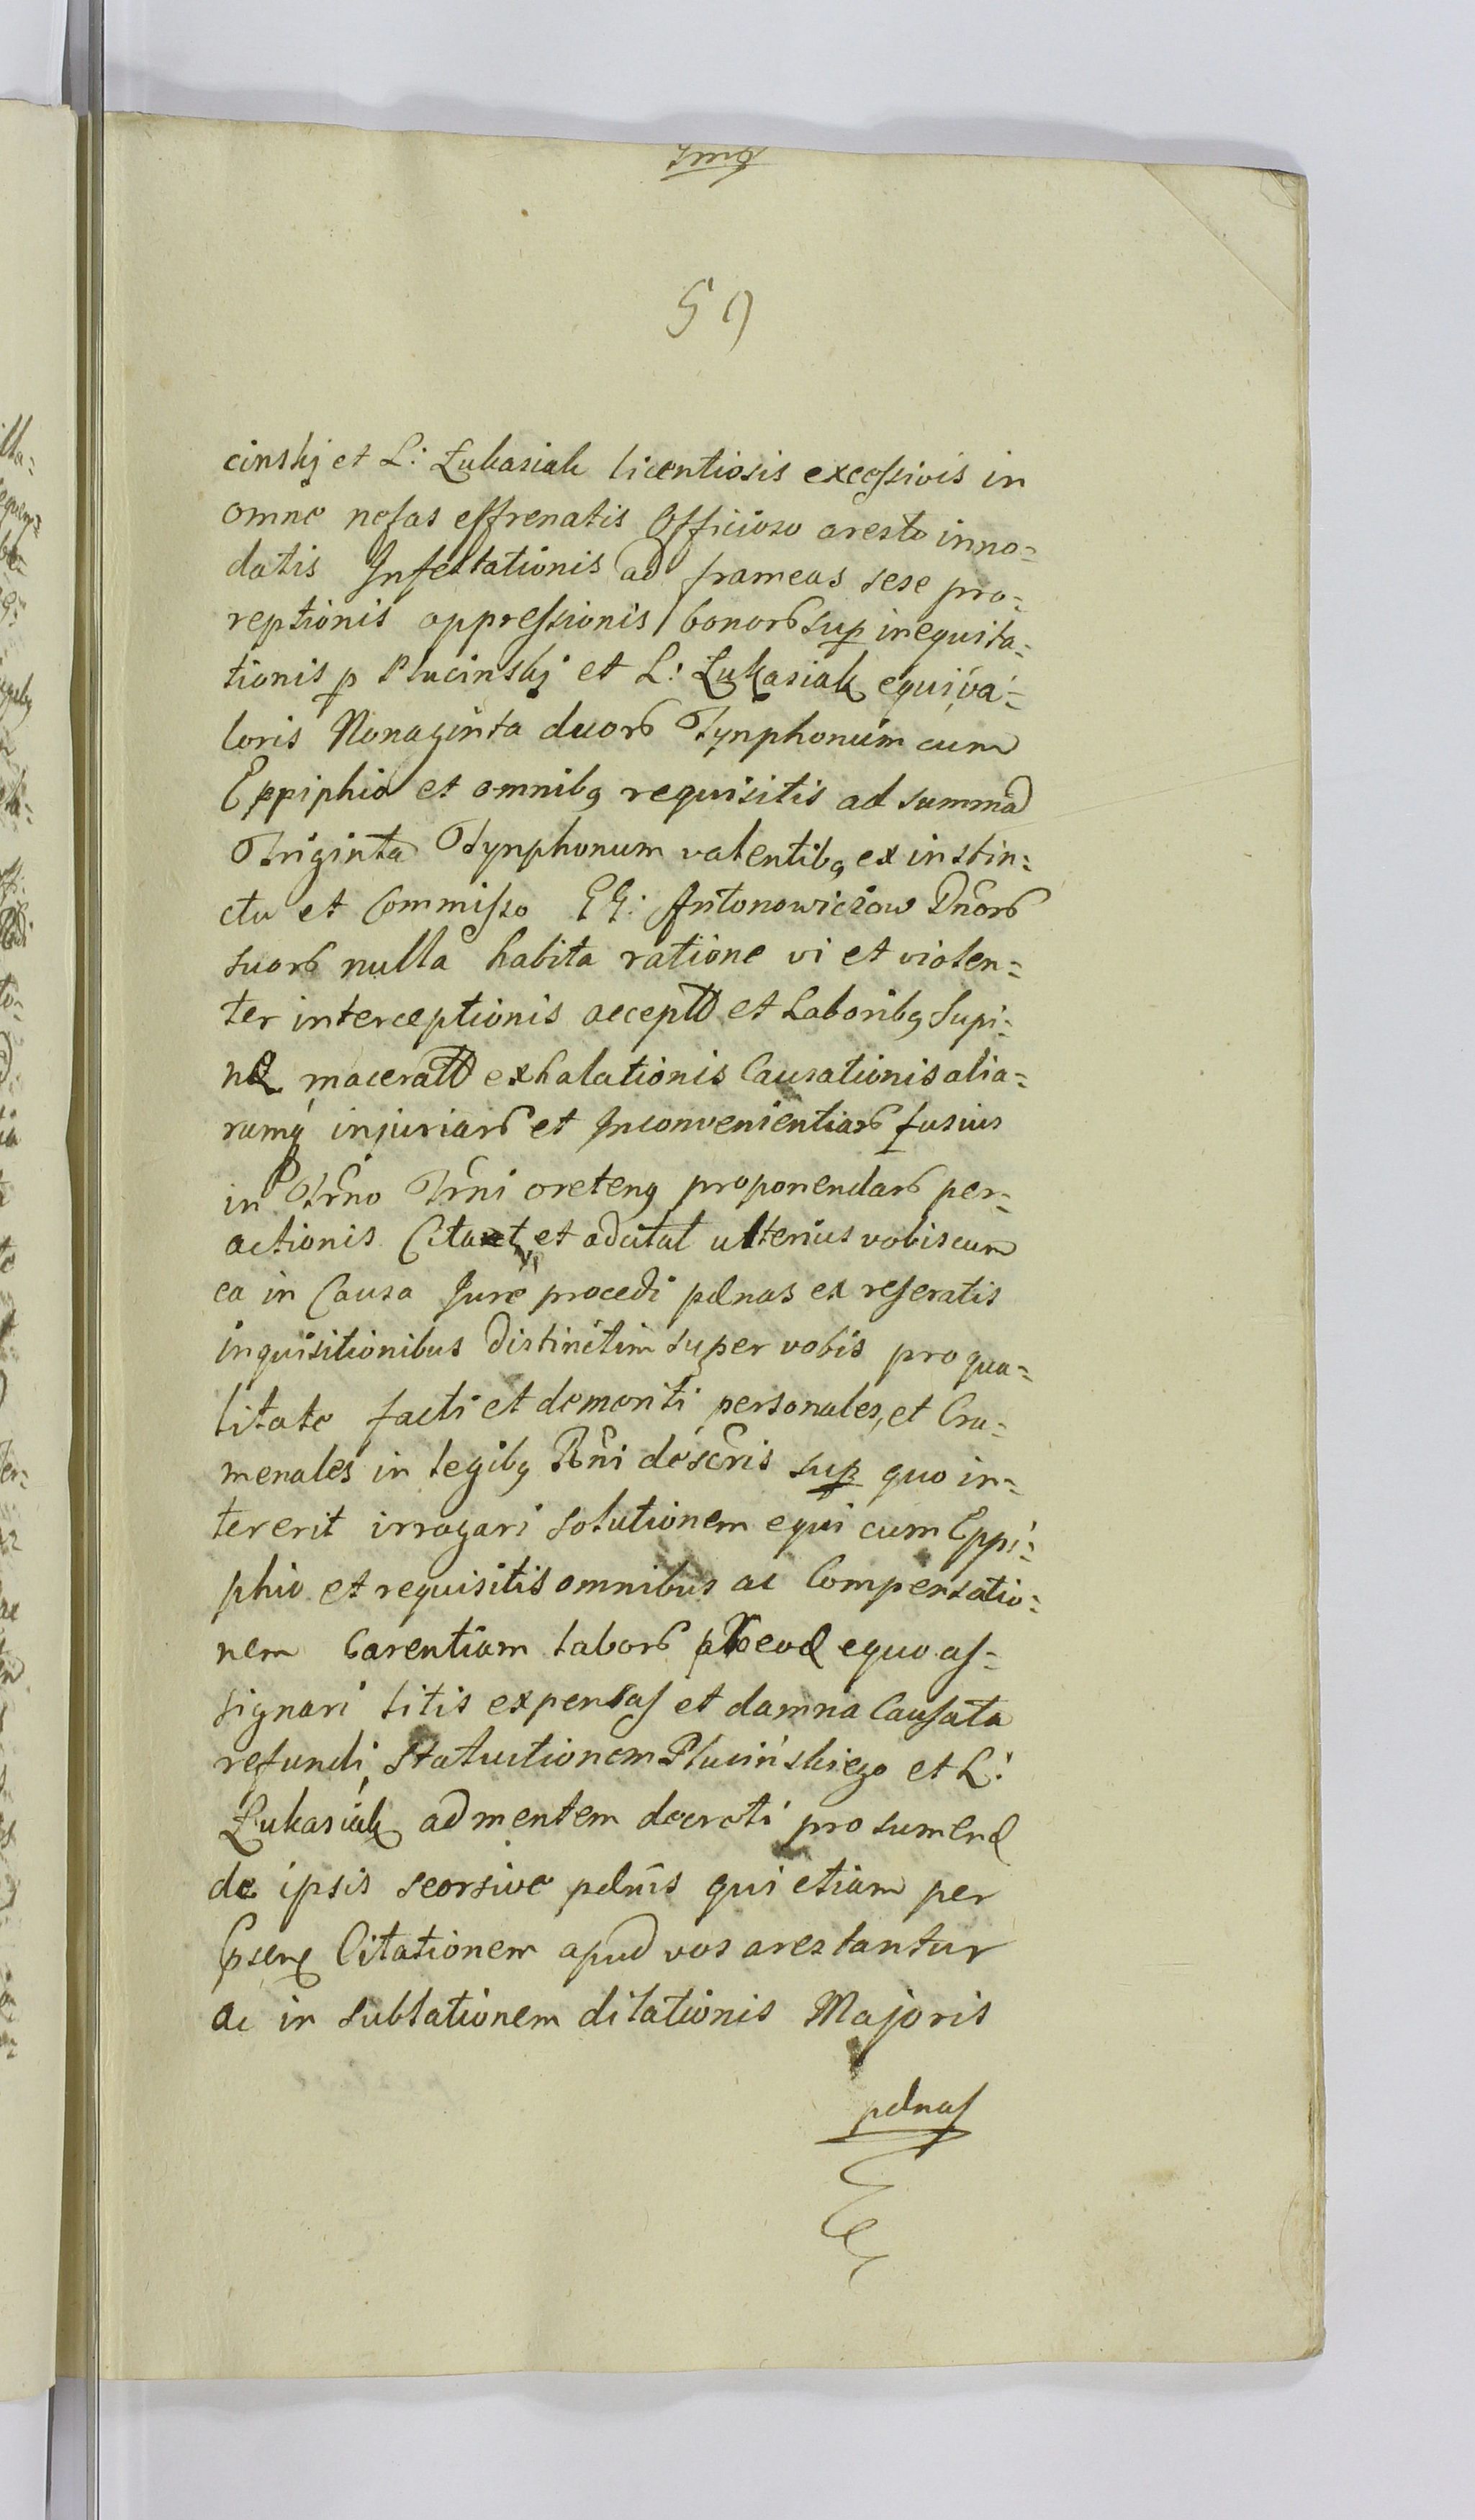 59
cinskj et L: Łukasiak licentiosis excessivis in
omne nefas effrenatis Officioso aresto inno=
datis Infestationis ad frameas sese pro=
reptionis oppressionis bonorũ sup inequita=
tionis p Plucinskj et L: Łukasiak equi va=
loris Nonaginta duorũ Tynphonum cum
Eppiphio et omnibq requisitis ad summã
Triginta Tynphonum valentibq ex instin=
ctu et Commisso GG: Antonowiczow Dnorũ
suorũ nulla habita ratione vi et violen=
ter interceptionis accepti et Laboribq supi=
ne macerati exhalationis Causationis alia=
rumq injuriarũ et Inconvenientiarũ fusius
in Trno Trni oretenq proponendarũ per=
actionis Citat et adcitat ulterius vobiscum
ea in Causa Jure procedi pdnas ex reseratis
inquisitionibus distinctim super vobis pro qua=
litate facti et demeriti personales, et Cru=
menales in legibq Rni descris sup quo in=
tererit irrogari solutionem equi cum Eppi=
phio et requisitis omnibus ac Compensatio=
nem Carentiam laborũ eod equo as=
signari litis expensas et damna Causata
refundi, Statuitionem Plucińskiego et L:
Łukasiak ad mentem decreti pro sumend
de ipsis seorsive pdnis qui etiam per
psene Citationem apud vos arestantur
ac in sublationem dilationis Majoris
pdnas